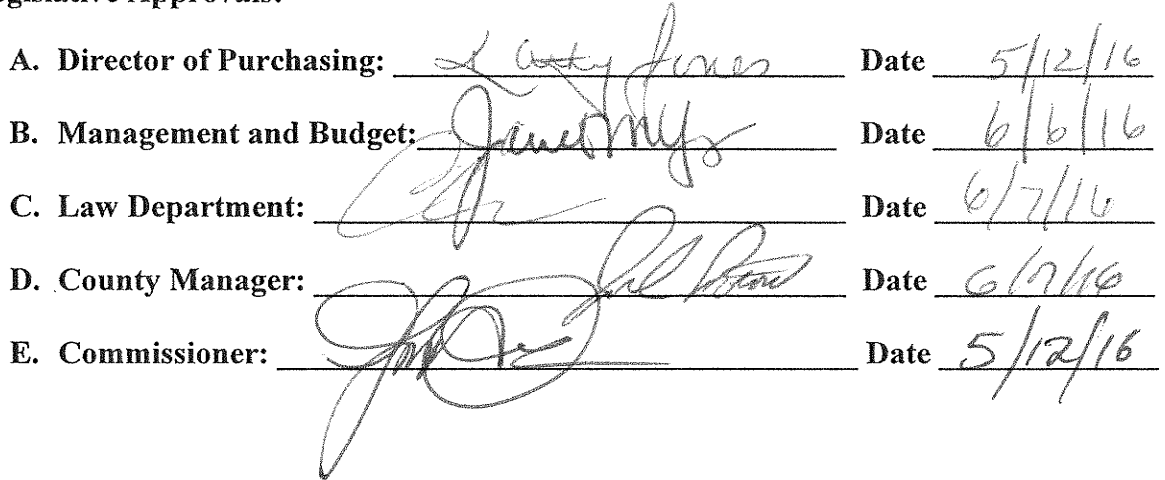 Approvals:
A. Director of Purchasing: Jones Date 5/12/16
B. Management and Budget: Janet Date 6/6/16
C. Law Department: Date 6/7/16
D. County Manager: Date 6/7/16
E. Commissioner: Date 5/12/16